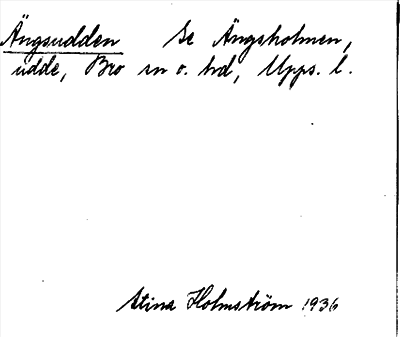 Ängsudden Se Ängsholmen,
udde, Bro sn o. hd, Upps. l.
Stina Holmström 1936